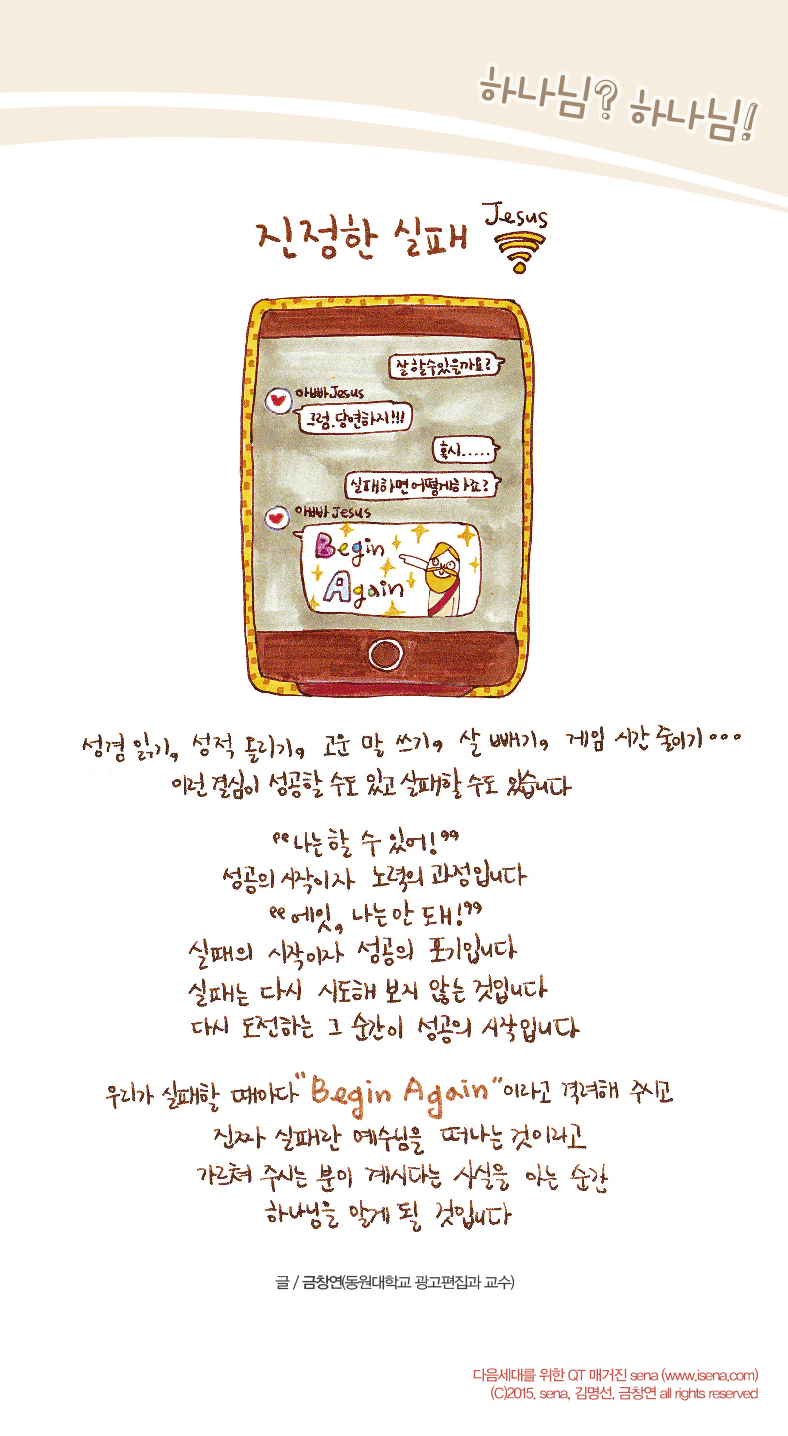 하나님? 하나님!
진정한 실패
Jesus
잘할수있을까요?
아빠Jesus
그럼.당연하지!!!
혹시.....
실패하면어떻게하죠?
아빠Jesus
Begin
Again
성경 읽기, 성적 올리기, 고운 말 쓰기, 살 빼기, 게임 시간 줄이기...
이런 결심이 성공할 수도 있고 실패할 수도 있습니다
"나는 할 수 있어!"
성공의 시작이자 노력의 과정입니다
"에잇, 나는 안 돼!"
실패의 시작이자 성공의 포기입니다
실패는 다시 시도해 보지 않는 것입니다
다시 도전하는 그 순간이 성공의 시작입니다
우리가 실패할 때마다 "Begin Again"이라고 격려해 주시고
진짜 실패란 예수님을 떠나는 것이라고
가르쳐 주시는 분이 계시다는 사실을 아는 순간
하나님을 알게 될 것입니다
글 / 금창연(동원대학교 광고편집과 교수)
다음세대를 위한 QT 매거진 sena (www.isena.com)
(C)2015. sena, 김명선, 금창연 all rights reserved